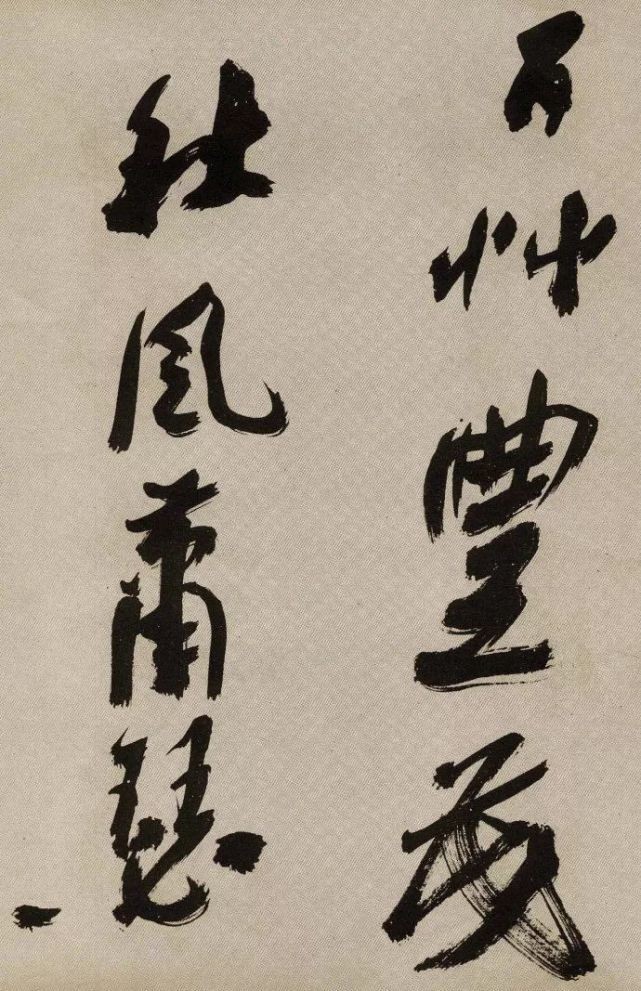 百艸豐茂
秋風蕭瑟